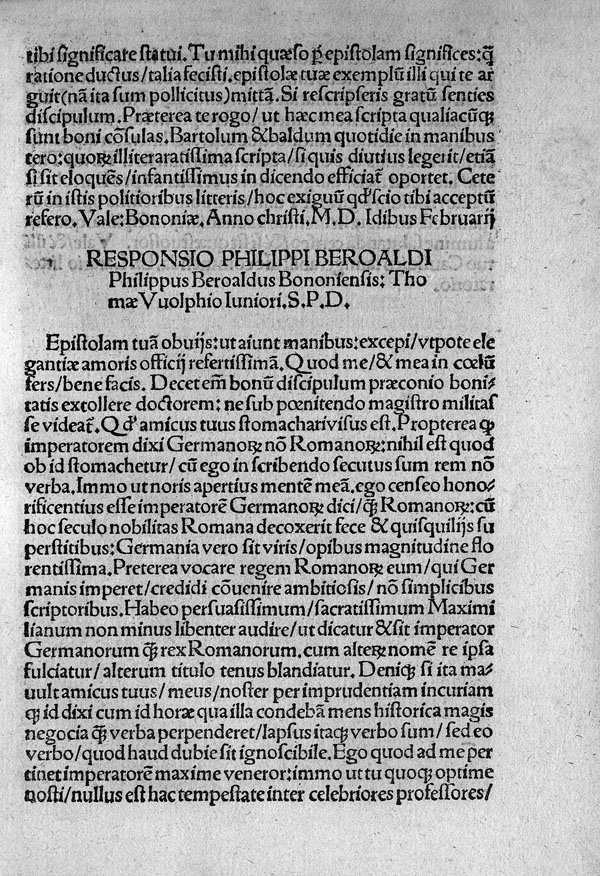 tibi significare statui. Tu mihi quæso ꝑ epistolam significes: q̃
ratione ductus/talia fecisti. epistolæ tuæ exemplũ illi qui te ar
guit (nã ita sum pollicitus) mittã. Si rescripseris gratũ senties
discipulum. Præterea te rogo/ut hæc mea scripta qualiacũꝗ
sunt boni cõsulas. Bartolum & baldum quotidie in manibus
tero: quoꝝ illiteraratissima scripta/si quis diutius legerit/etiã
si sit eloquẽs/infantissimus in dicendo efficiat̃ oportet. Cete
rũ in istis politioribus litteris/hoc exiguũ qd' scio tibi acceptũ
refero. Vale: Bononiæ. Anno christi. M. D. Idibus Februarij
RESPONSIO PHILIPPI BEROALDI
Philippus Beroaldus Bononiensis: Tho
mæ Vuolphio Iuniori. S. P. D.
Epistolam tuã obuijs: ut aiunt manibus: excepi/vtpote ele
gantiæ amoris officij refertissimã. Quod me/& mea in cœlũ
fers/bene facis. Decet em̃ bonũ discipulum præconio boni-
tatis extollere doctorem: ne sub pœnitendo magistro militas
se videat̃. Qd' amicus tuus stomachatiuisus est. Propterea ꝙ
imperatorem dixi Germanoꝝ nõ Romanoꝝ: nihil est quod
ob id stomachetur/cũ ego in scribendo secutus sum rem nõ
verba. Immo ut noris apertius mentẽ meã. ego censeo hono-
rificentius esse imperatorẽ Germanoꝝ dici/q̃ꝫ Romanoꝝ: cũ
hoc seculo nobilitas Romana decoxerit fece & quisquilijs su
perstitibus: Germania vero sit viris/opibus magnitudine flo
rentissima. Preterea vocare regem Romanoꝝ eum/qui Ger
manis imperet/credidi cõuenire ambitiosis/nõ simplicibus
scriptoribus. Habeo persuasissimum/sacratissimum Maximi
lianum non minus libenter audire/ut dicatur & sit imperator
Germanorum q̃ꝫ rex Romanorum. cum alteꝝ nomẽ re ipsa
fulciatur/alterum titulo tenus blandiatur. Deniꝗ si ita ma-
uult amicus tuus/meus/noster per imprudentiam incuriam
ꝗ id dixi cum id horæ qua illa condebã mens historica magis
negocia q̃ꝫ verba perpenderet/lapsus itaꝗ verbo sum/sed eo
verbo/quod haud dubie sit ignoscibile. Ego quod ad me per
tinet imperatorẽ maxime veneror: immo ut tu quoꝗ optime
nosti/nullus est hac tempestate inter celebriores professores/